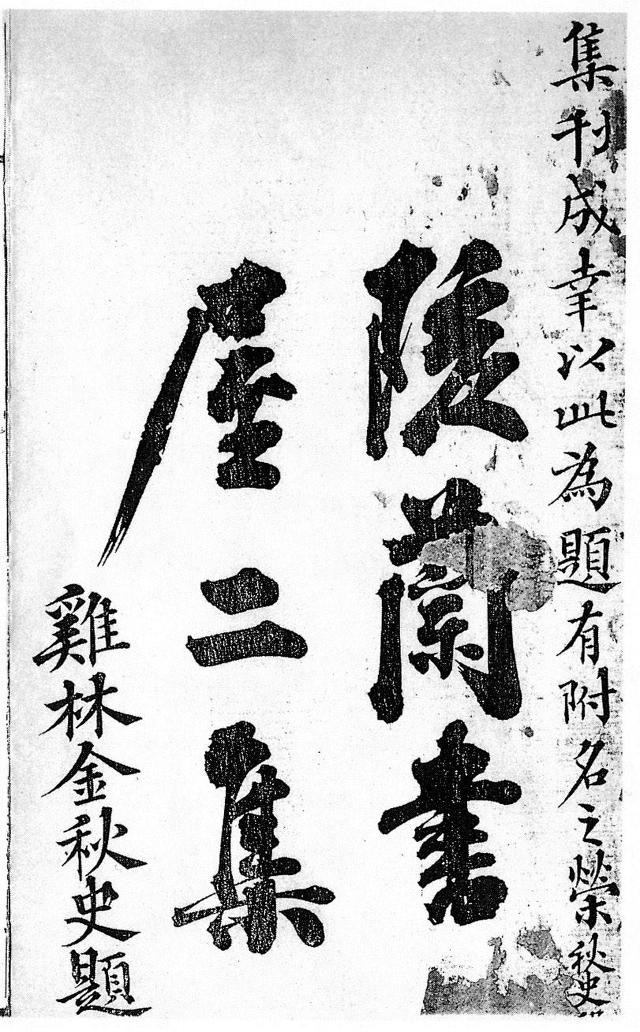 集刊成幸以此為題有附名之榮秋史
陵蘭書
屋二集
雞林金秋史題